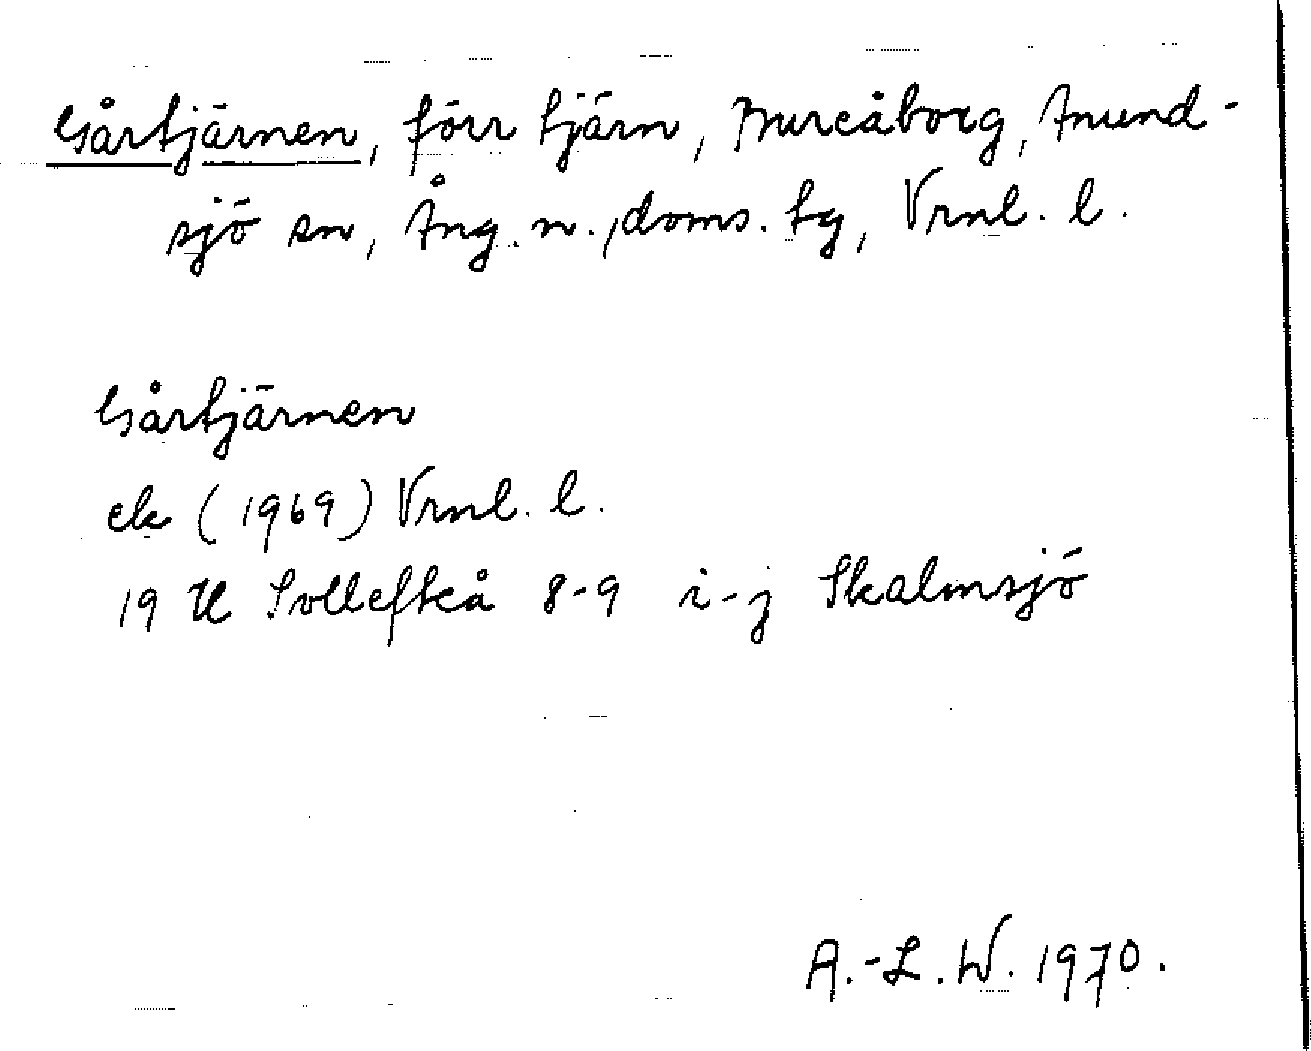 Gårtjärnen, förr tjärn, Bureåborg, Anund-
sjö sn, Ång. n., doms. tg, Vrnl. l.
Gårtjärnen
ek (1969) Vrnl. l.
19 H Sollefteå 8-9 i-j Skalmsjö
A.-L. W. 1970.